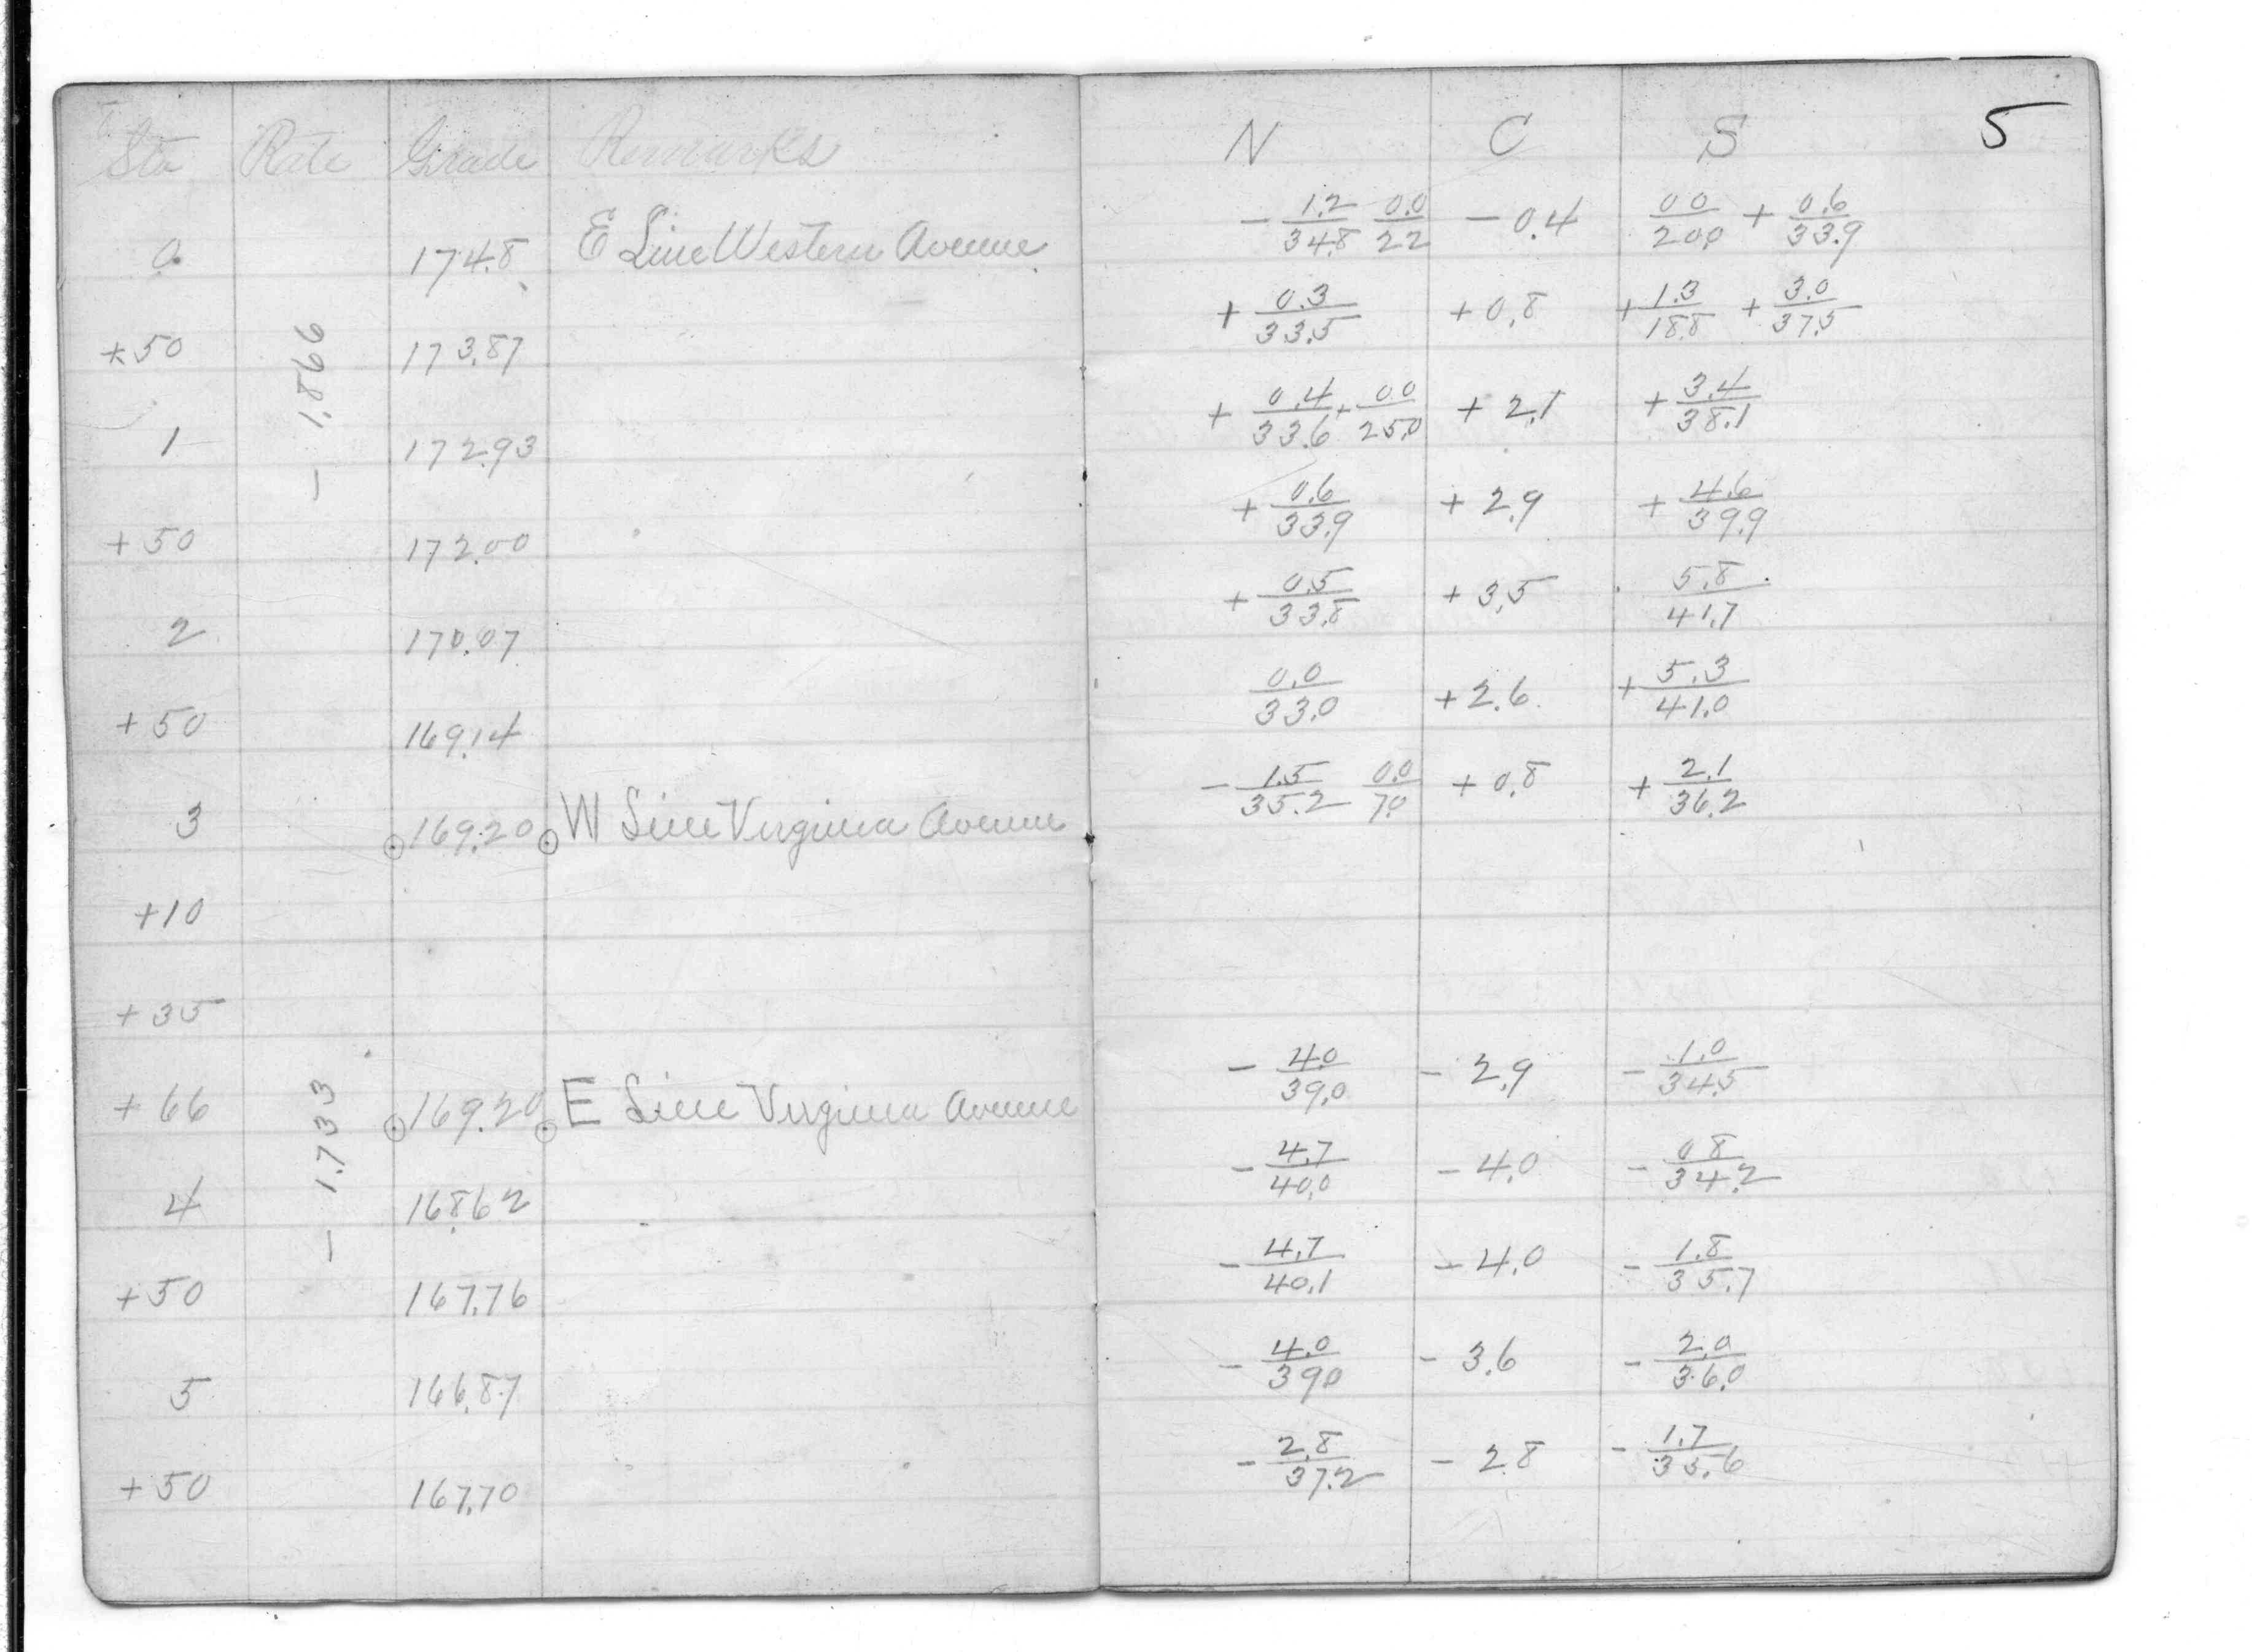 Sta Rate Grade Remarks N C S 5
0 174.8 E Line Western Avenue - 1.2/34.8 0.0/22 - 0.4 00/20.0 + 0.6/33.9
+50 173.87 + 0.3/33.5 + 0.8 + 1.3/18.8 + 3.0/37.5
- 1.866
1 172.93 + 0.4/33.6 + 00/25.0 + 2.1 + 3.4/38.1
+50 172.00 + 0.6/33.9 + 2.9 + 4.6/39.9
2 170.07 + 0.5/33.8 + 3.5 5.8/41.7
+50 169.14 0.0/33.0 + 2.6 + 5.3/41.0
3 169.20 W Line Virginia Avenue - 1.5/35.2 0.0/7.0 + 0.8 + 2.1/36.2
+10
+35
+66 169.20 E Line Virginia Avenue - 4.0/39.0 - 2.9 - 1.0/34.5
- 1.733
4 168.62 - 4.7/40.0 - 4.0 - 08/34.2
+50 167.76 - 4.7/40.1 - 4.0 - 1.8/35.7
5 166.87 - 4.0/390 - 3.6 - 2.0/36.0
+50 167.70 - 2.8/37.2 - 2.8 - 1.7/35.6